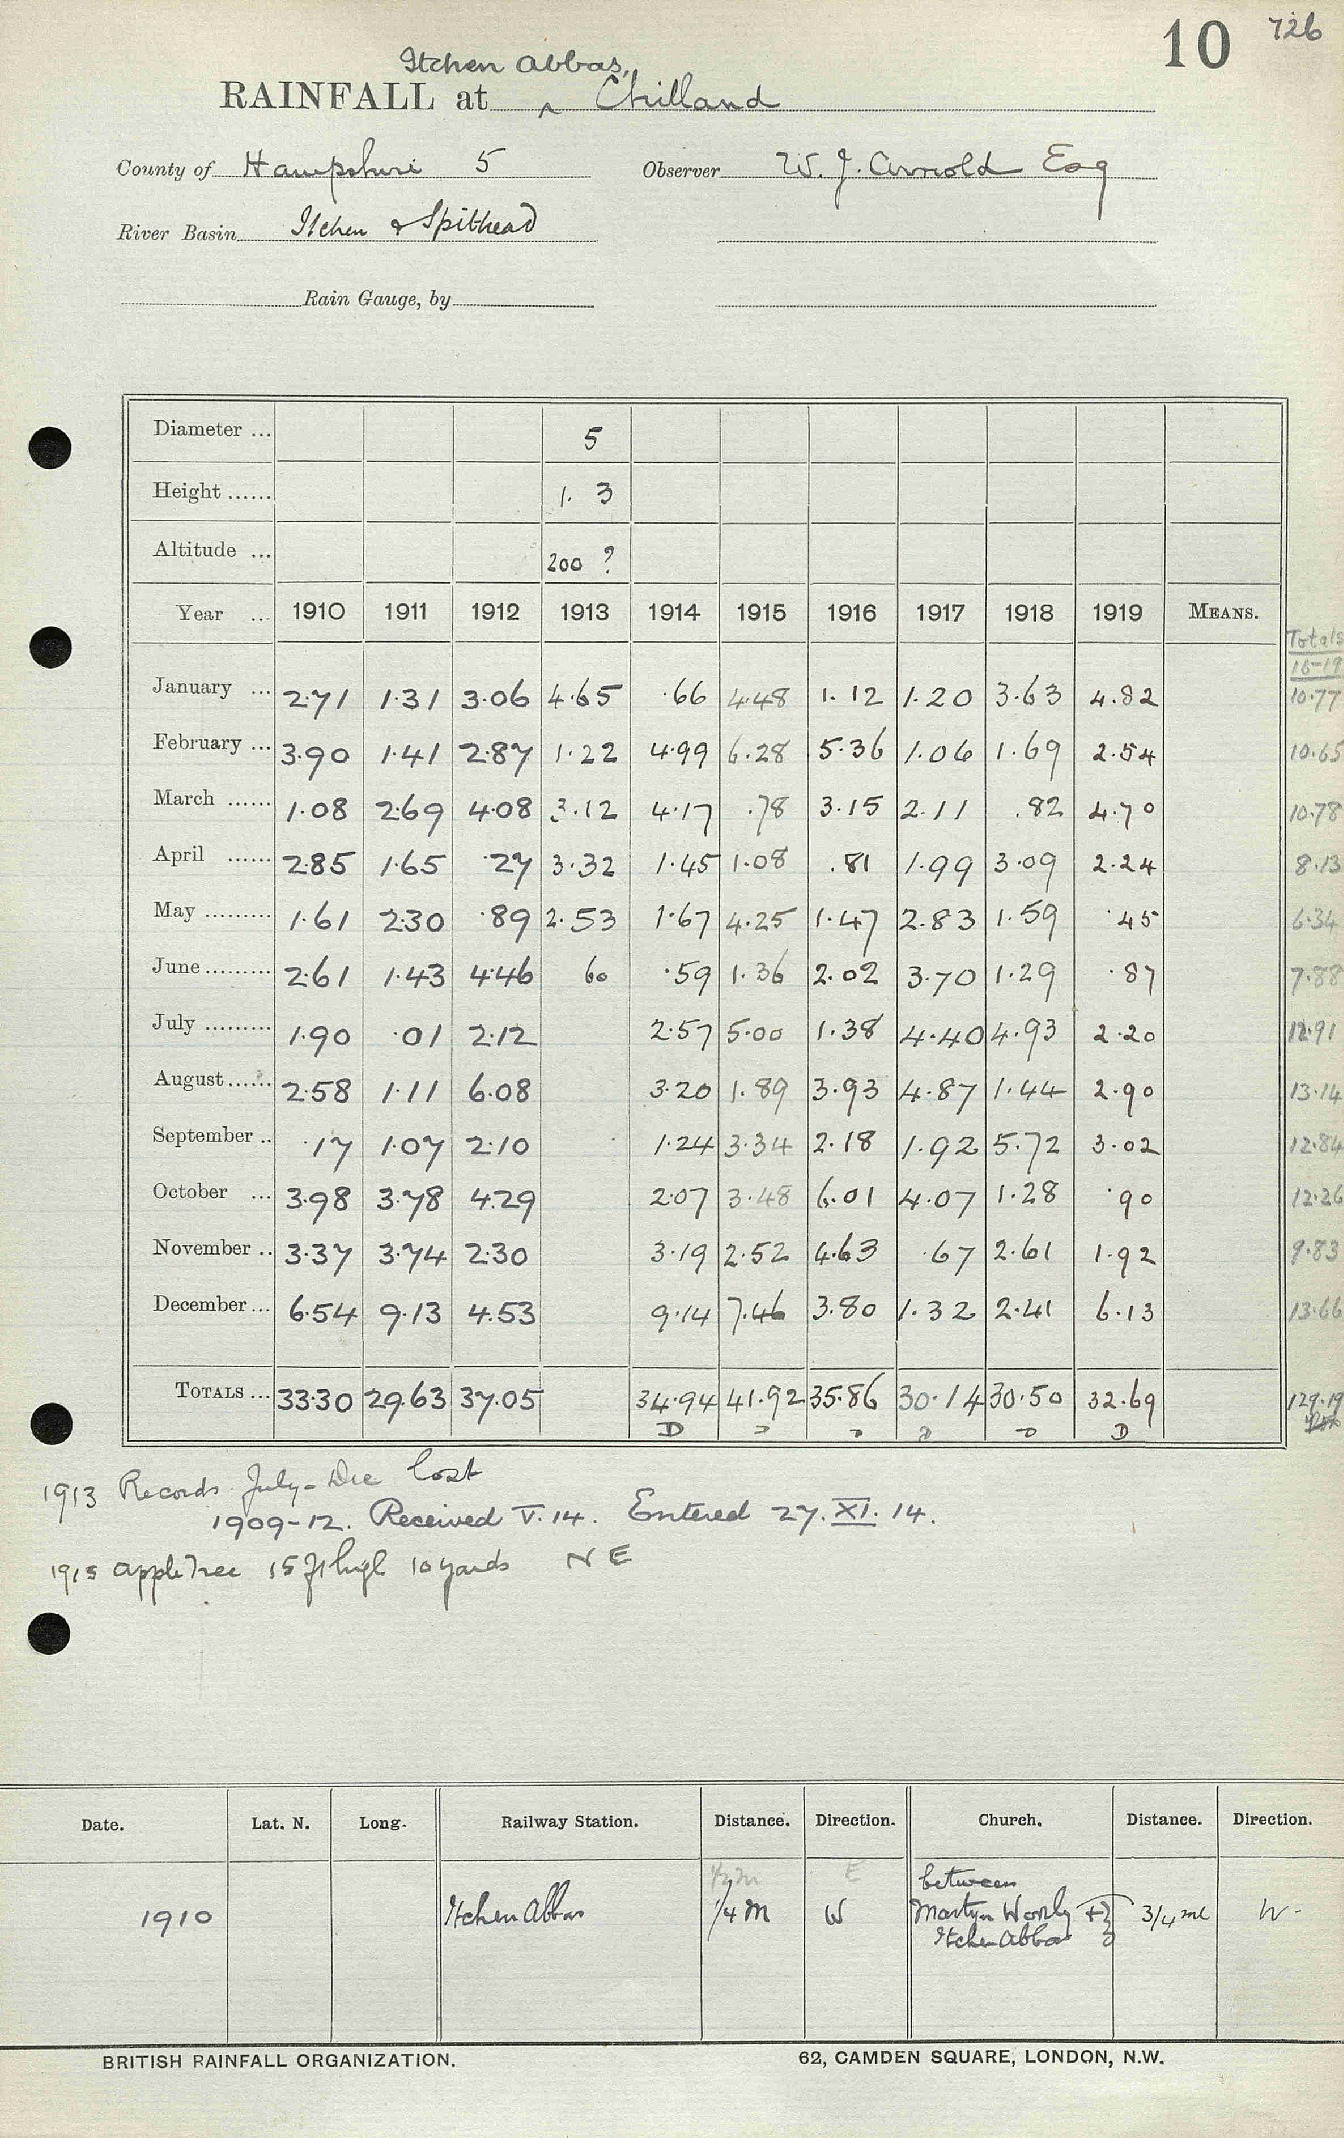 10 726
Itchen Abbas,
RAINFALL at ^ Chilland
County of Hampshire 5 Observer W. J. Arnold Esq
River Basin Itchen & Spithead
Rain Gauge, by
Diameter ... 5
Height ...... 1. 3
Altitude ... 200 ?
Year ... 1910 1911 1912 1913 1914 1915 1916 1917 1918 1919 MEANS.
Totals
15-19
January ... 2.71 1.31 3.06 4.65 .66 4.48 1.12 1.20 3.63 4.82 10.77
February ... 3.90 1.41 2.87 1.22 4.99 6.28 5.36 1.06 1.69 2.54 10.65
March ...... 1.08 2.69 4.08 3.12 4.17 .78 3.15 2.11 .82 4.70 10.78
April ...... 2.85 1.65 .27 3.32 1.45 1.08 .81 1.99 3.09 2.24 8.13
May ......... 1.61 2.30 .89 2.53 1.67 4.25 1.47 2.83 1.59 .45 6.34
June ......... 2.61 1.43 4.46 60 .59 1.36 2.02 3.70 1.29 .87 7.88
July ......... 1.90 .01 2.12 2.57 5.00 1.38 4.40 4.93 2.20 12.91
August...... 2.58 1.11 6.08 3.20 1.89 3.93 4.87 1.44 2.90 13.14
September .. .17 1.07 2.10 1.24 3.34 2.18 1.92 5.72 3.02 12.84
October ... 3.98 3.78 4.29 2.07 3.48 6.01 4.07 1.28 .90 12.26
November .. 3.37 3.74 2.30 3.19 2.52 4.63 .67 2.61 1.92 9.83
December ... 6.54 9.13 4.53 9.14 7.46 3.80 1.32 2.41 6.13 13.66
TOTALS ... 33.30 29.63 37.05 34.94 41.92 35.86 30.14 30.50 32.69 129.19
D D D D D D
1913 Records July-Dec lost
1909-12. Received V.14. Entered 27.XI.14.
1915 apple tree 15 ft high 10 yards N E
Date. Lat. N. Long. Railway Station. Distance. Direction. Church. Distance. Direction.
1/2 m E between
1910 Itchen Abbas 1/4 m W Martyr Worthy + 3/4 ml W.
Itchen Abbas
BRITISH RAINFALL ORGANIZATION. 62, CAMDEN SQUARE, LONDON, N.W.